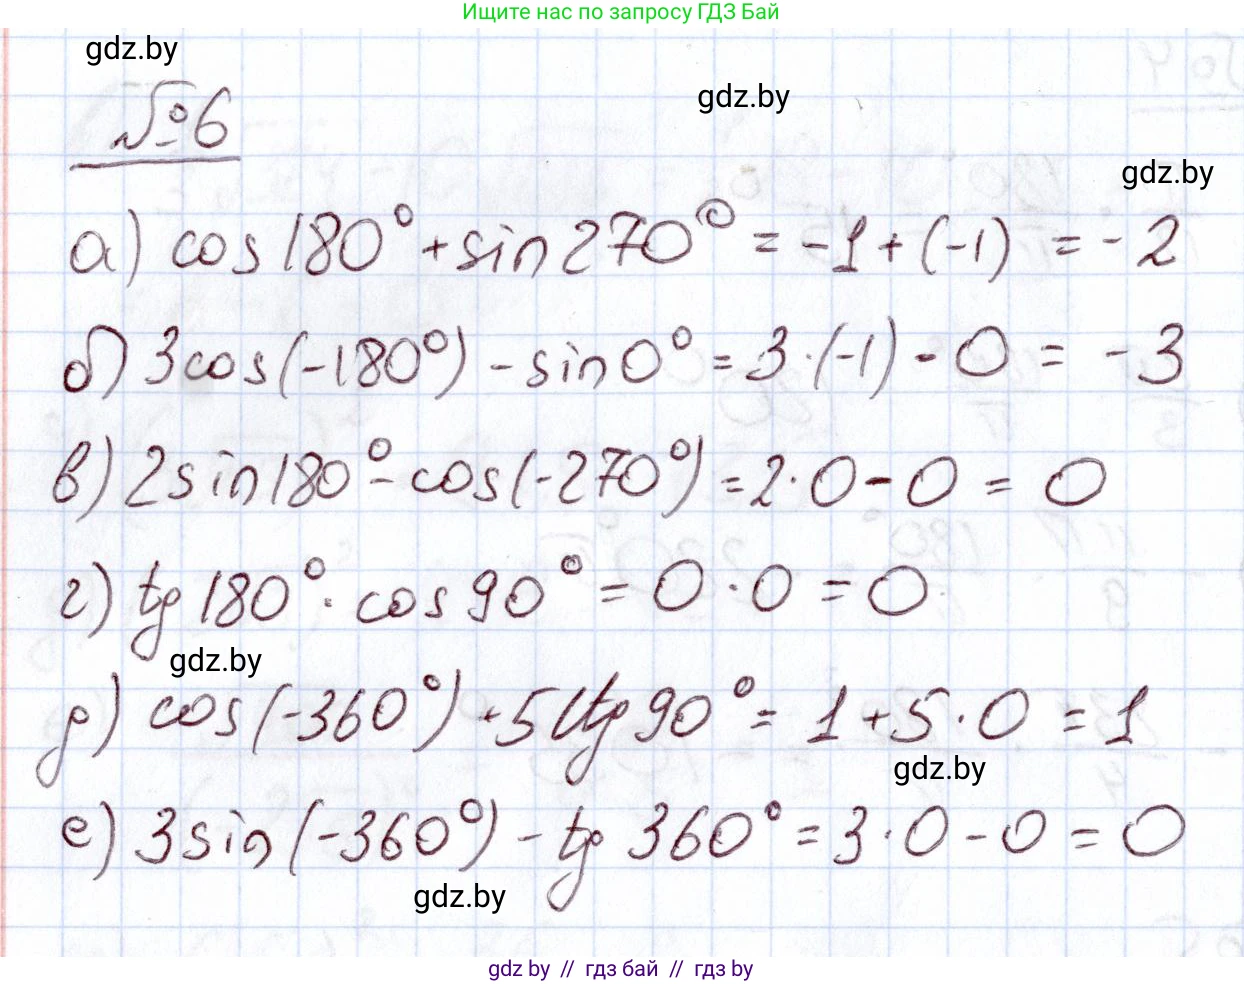 Ищите нас по запросу ГДЗ Бай
gdz.by
gdz.by
№6
gdz.by
а) cos180° + sin270° = -1 + (-1) = -2
б) 3cos(-180°) - sin0° = 3·(-1) - 0 = -3
в) 2sin180° - cos(-270°) = 2·0 - 0 = 0
г) tg180° · cos90° = 0·0 = 0
gdz.by
д) cos(-360°) + 5ctg90° = 1 + 5·0 = 1
gdz.by
е) 3sin(-360°) - tg 360° = 3·0 - 0 = 0
gdz.by
gdz by // гдз бай // гдз by